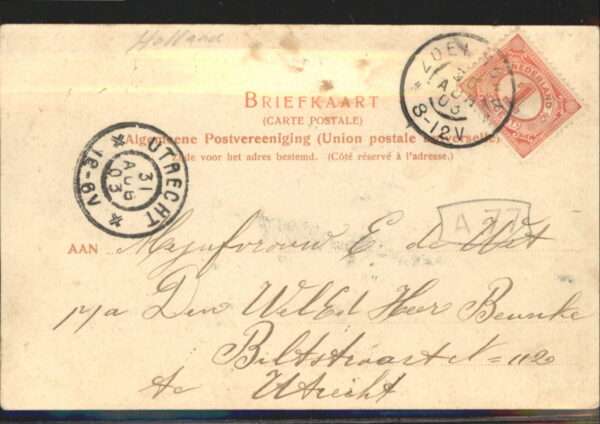 Holland
NEDERLAND
1
31
AUG
03
8-12V
BRIEFKAART
(CARTE POSTALE)
Algemeene Postvereeniging (Union postale universelle)
Zijde voor het adres bestemd. (Côté réservé à l'adresse.)
UTRECHT
31
AUG
03
A 77
AAN Mejufvrouw E. de Wit
p/a Den WelEd Heer Beunke
Biltstraat No 112
te Utrecht